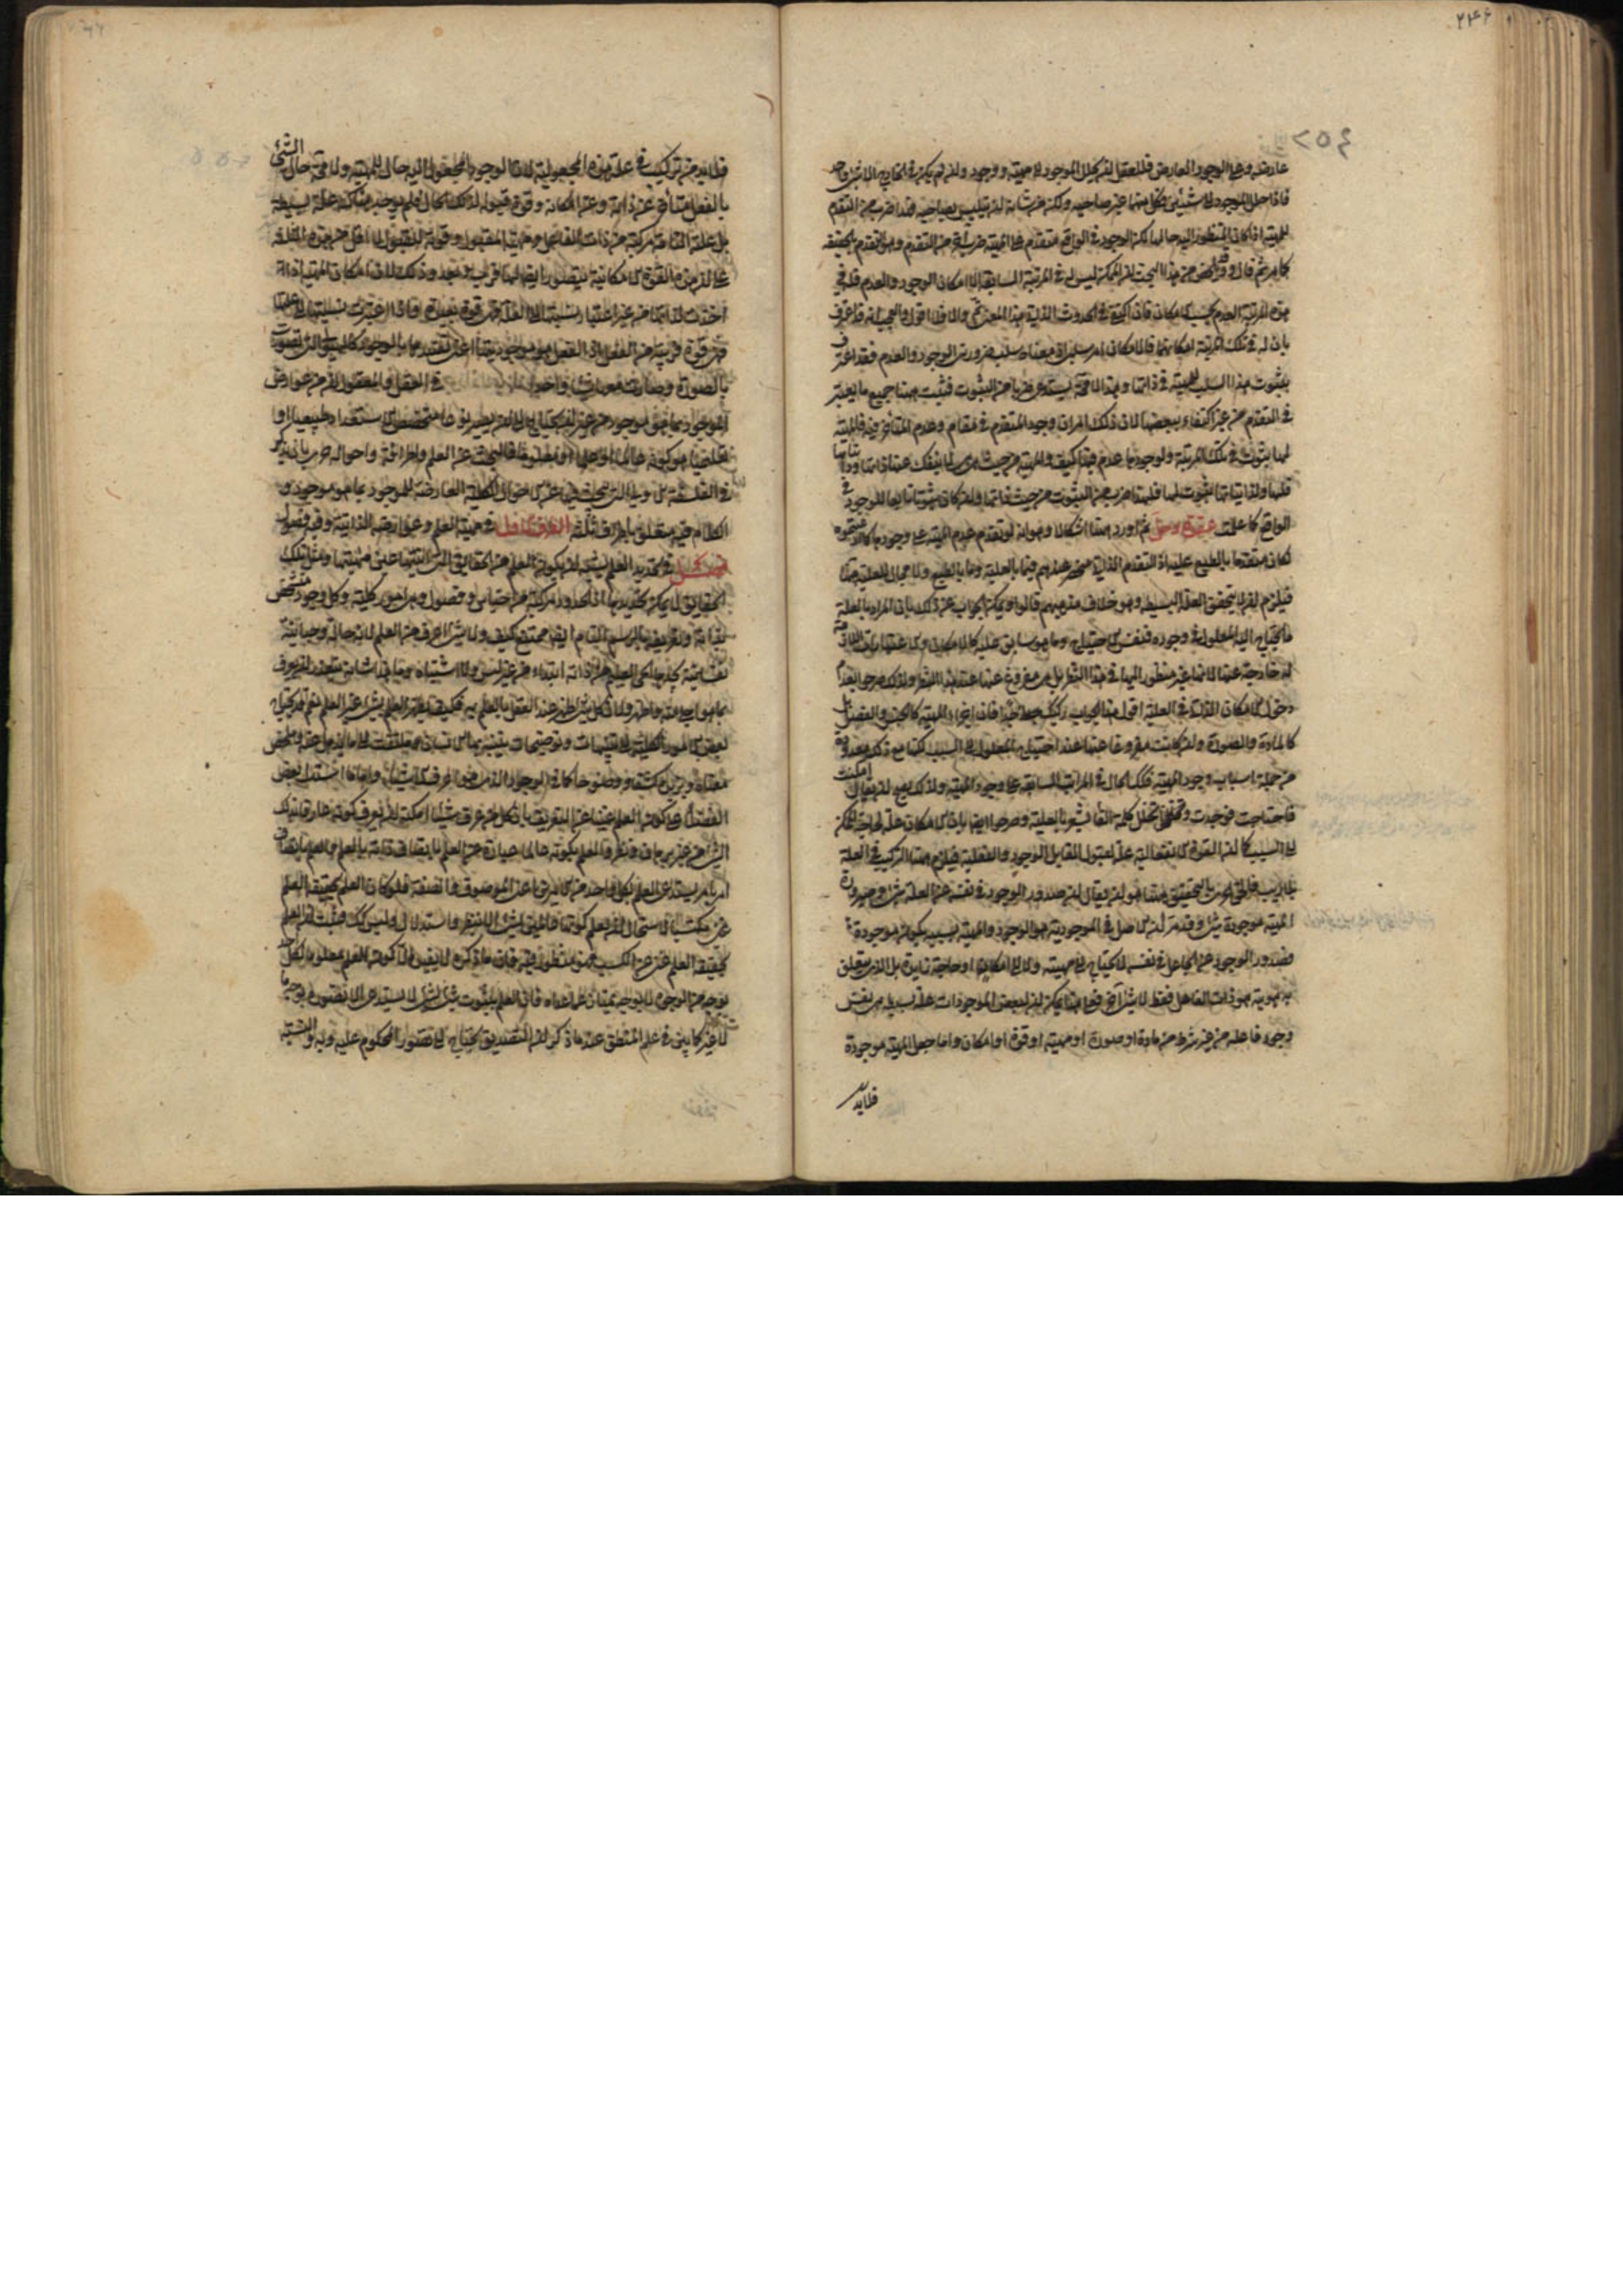 ٢٤٦
٢٥٤
عارضة وعلى الوجود العارض فللعقل ان يحلل الموجود الى مهية ووجود وان لم يكن في الخارج الا شئ واحد
فاذا حلل الموجود الى شيئين فكل منهما غير صاحبه ولكن من شانه ان يتلبس بصاحبه هذا ضرب من التقدم
للمهية اذ كان المنظور اليه حالها لكن الوجود في الواقع متقدم على المهية ضربا آخر من التقدم وهو التقدم بالحقيقة
كما مر ثم قال وقد من هذا البحث ان الممكن ليس له في المرتبة السابقة الا امكان الوجود والعدم فله في
هذه المرتبة العدم بحسب الامكان فان اكتفى في الحدوث الذاتي بهذا المعنى تم والا فلا اقول والعجب انه قد اعترف
بان له في تلك المرتبة امكانهما فالامكان امر سلبي اذ معناه سلب ضرورتي الوجود والعدم فقد اعترف
بثبوت هذا السلب للمهية في ذاتها وهذا لا محة يستدعي ضربا من الثبوت فثبت ههنا جميع ما يعتبر
في المتقدم من غير اكتفاء ببعضها لان ذلك امران وجود المتقدم في مقام وعدم المتأخر فيه فالمهية
لها ثبوت في تلك المرتبة ولوجودها عدم فيها كيف والمهية من حيث هي هي لا ينفك عنها ذاتها وذاتياتها
فلها ولذاتياتها ثبوت لها فلهذا ضرب من الثبوت من حيث ذاتها وان كان ثبوتا تابعا للوجود في
الواقع كما علمت عقدة وحل ثم اورد ههنا اشكالا وهو انه لو تقدم عدم المهية على وجودها كما زعمتموه
لكان متقدما بالطبع عليه اذ التقدم الذاتي منحصر عندهم فيما بالعلية وما بالطبع ولا مجال للعلية هنا
فيلزم ان لا يتحقق العلة البسيطة وهو خلاف مذهبهم قالوا ويمكن الجواب عن ذلك بان المراد بالعلة
ما يحتاج اليه المعلول في وجوده فنفس الاحتياج وما هو سابق عليه كالامكان والاعتبارات اللازمة
له خارجة عنها لانها غير منظور اليها في هذا النظر بل هي مفروغ عنها عند هذا النظر ولذلك صرحوا بعدم
دخول الامكان الذاتي في العلية اقول هذا الجواب ركيك جدا فان اجزاء المهية كالجنس والفصل بل
كالمادة والصورة وان كانت مفروغا عنها عند احتياج المعلول الى السبب لكنها مع ذلك معدودة
من جملة اسباب وجود المهية فكذا الحال في المراتب السابقة على وجود المهية ولذلك يصح ان يقال امكنت
فاحتاجت فوجدت وتخلل كلمة الفاء يشعر بالعلية وصرحوا ايضا بان الامكان علة لحاجة الممكن
الى السبب كما ان القوة الانفعالية علة لقبول المقابل الوجود والفعلية فيلزم ههنا التركيب في العلة
بلا ريب فالحق الحري بالتحقيق ههنا هو ان يقال ان صدور الوجود في نفسه عن العلة شئ وصيرورة
المهية موجودة شئ وقد مر ان الاصل في الموجودية هو الوجود والمهية بسببه يكون موجودة
فصدور الوجود عن الجاعل في نفسه لا يحتاج الى مهيته ولا الى امكانها او حاجة زايدة بل الذي يتعلق
به هويته هو ذات الفاعل فقط لا شئ آخر فعلى هذا يمكن ان لبعض الموجودات علة بسيطة هي نفس
وجود فاعله من غير شرط من مادة او صورة او مهية او قوة او امكان واما جعل المهية موجودة
فلابد
فلابد من تركيب في علة هذه المجعولية لان الوجود المجعول اليه حال للمهية ولا محة حال الشئ
بالفعل متأخر عن ذاته وعن امكانه وقوة قبوله لذلك الحال فلم يوجد هناك علة بسيطة
بل علة التامة مركبة من ذات الفاعل ومهية المقبول وقوة القبول لا اقل من هذه الثلثة
على ان هذه القوة الامكانية يتصور ايضا لها قرب وبعد وذلك لان امكان المهية اذا
اخذت لذاتها من غير اعتبار نسبتها الى العلة فهي قوة بعيدة واذا اعتبرت نسبتها الى علتها
فهي قوة قريبة من الفعل
بالصورة وصارت معها شيئا واحدا في العقل والمعقول ان من عوارض
الموجود بما هو موجود من غير ان يحتاج الى ان يصير نوعا متخصص الاستعداد طبيعيا او
تعليميا هو كونه عالما او علما او معلوما فالبحث عن العلم واطرافه واحواله حري بان يذكر
في الفلسفة الاولى التي يبحث فيها عن الاحوال الكلية العارضة للموجود بما هو موجود و
الكلام فيه يتعلق باطراف ثلثة الطرف الاول في مهية العلم وعوارضه الذاتية وفيه فصول
فصل في تحديد العلم يشبه ان يكون العلم من الحقايق التي انيتها عين مهيتها ومثل تلك
الحقايق لا يمكن تحديدها اذ الحدود مركبة من اجناس وفصول وهي امور كلية وكل وجود متشخص
بذاته وتعريفه بالرسم التام ايضا ممتنع كيف ولا شئ اعرف من العلم لانه حالة وجدانية
نفسانية يجدها الحي العليم من ذاته ابتداء من غير لبس ولا اشتباه وما هذا شانه يتعذر ان يعرف
بما هو اجلى منه واظهر ولان كل شئ يظهر عند العقل بالعلم به فكيف يظهر العلم بشئ غير العلم نعم قد يحتاج
بعض الامور الجلية الى تنبيهات وتوضيحات يتنبه بها الانسان ويلتفت الى ما يذهل عنه ويلخص
معناه ويزيده كشفا ووضوحا كما في الوجود الذي هو اعرف الاشياء واما ما استدل به بعض
الفضلاء على كون العلم غنيا عن التعريف بان كل من عرف شيئا امكنه ان يعرف كونه عارفا بذلك
الشئ من غير برهان ونظر والعلم بكونه عالما عبارة عن العلم باتصاف ذاته بالعلم والعلم باتصاف
امر بامر يستدعي العلم بكل واحد من الامرين اعني الموصوف والصفة فلو كان العلم بحقيقة العلم
مكتسبا لاستحال ان نعلم كوننا عالمين بشئ الا بنظر واستدلال وليس كذلك فثبت ان العلم
بحقيقة العلم غني عن الكسب فهو منظور فيه فان ما ذكره لا يفيد الا كون العلم معلوما لكل احد
بوجه من الوجوه لا بوجه يمتاز به عما عداه فان العلم بثبوت شئ لشئ لا يستدعي الا تصورهما بوجه ما
لا غير كما بين في علم المنطق عند ما ذكر ان التصديق يحتاج الى تصور المحكوم عليه وبه والنسبة